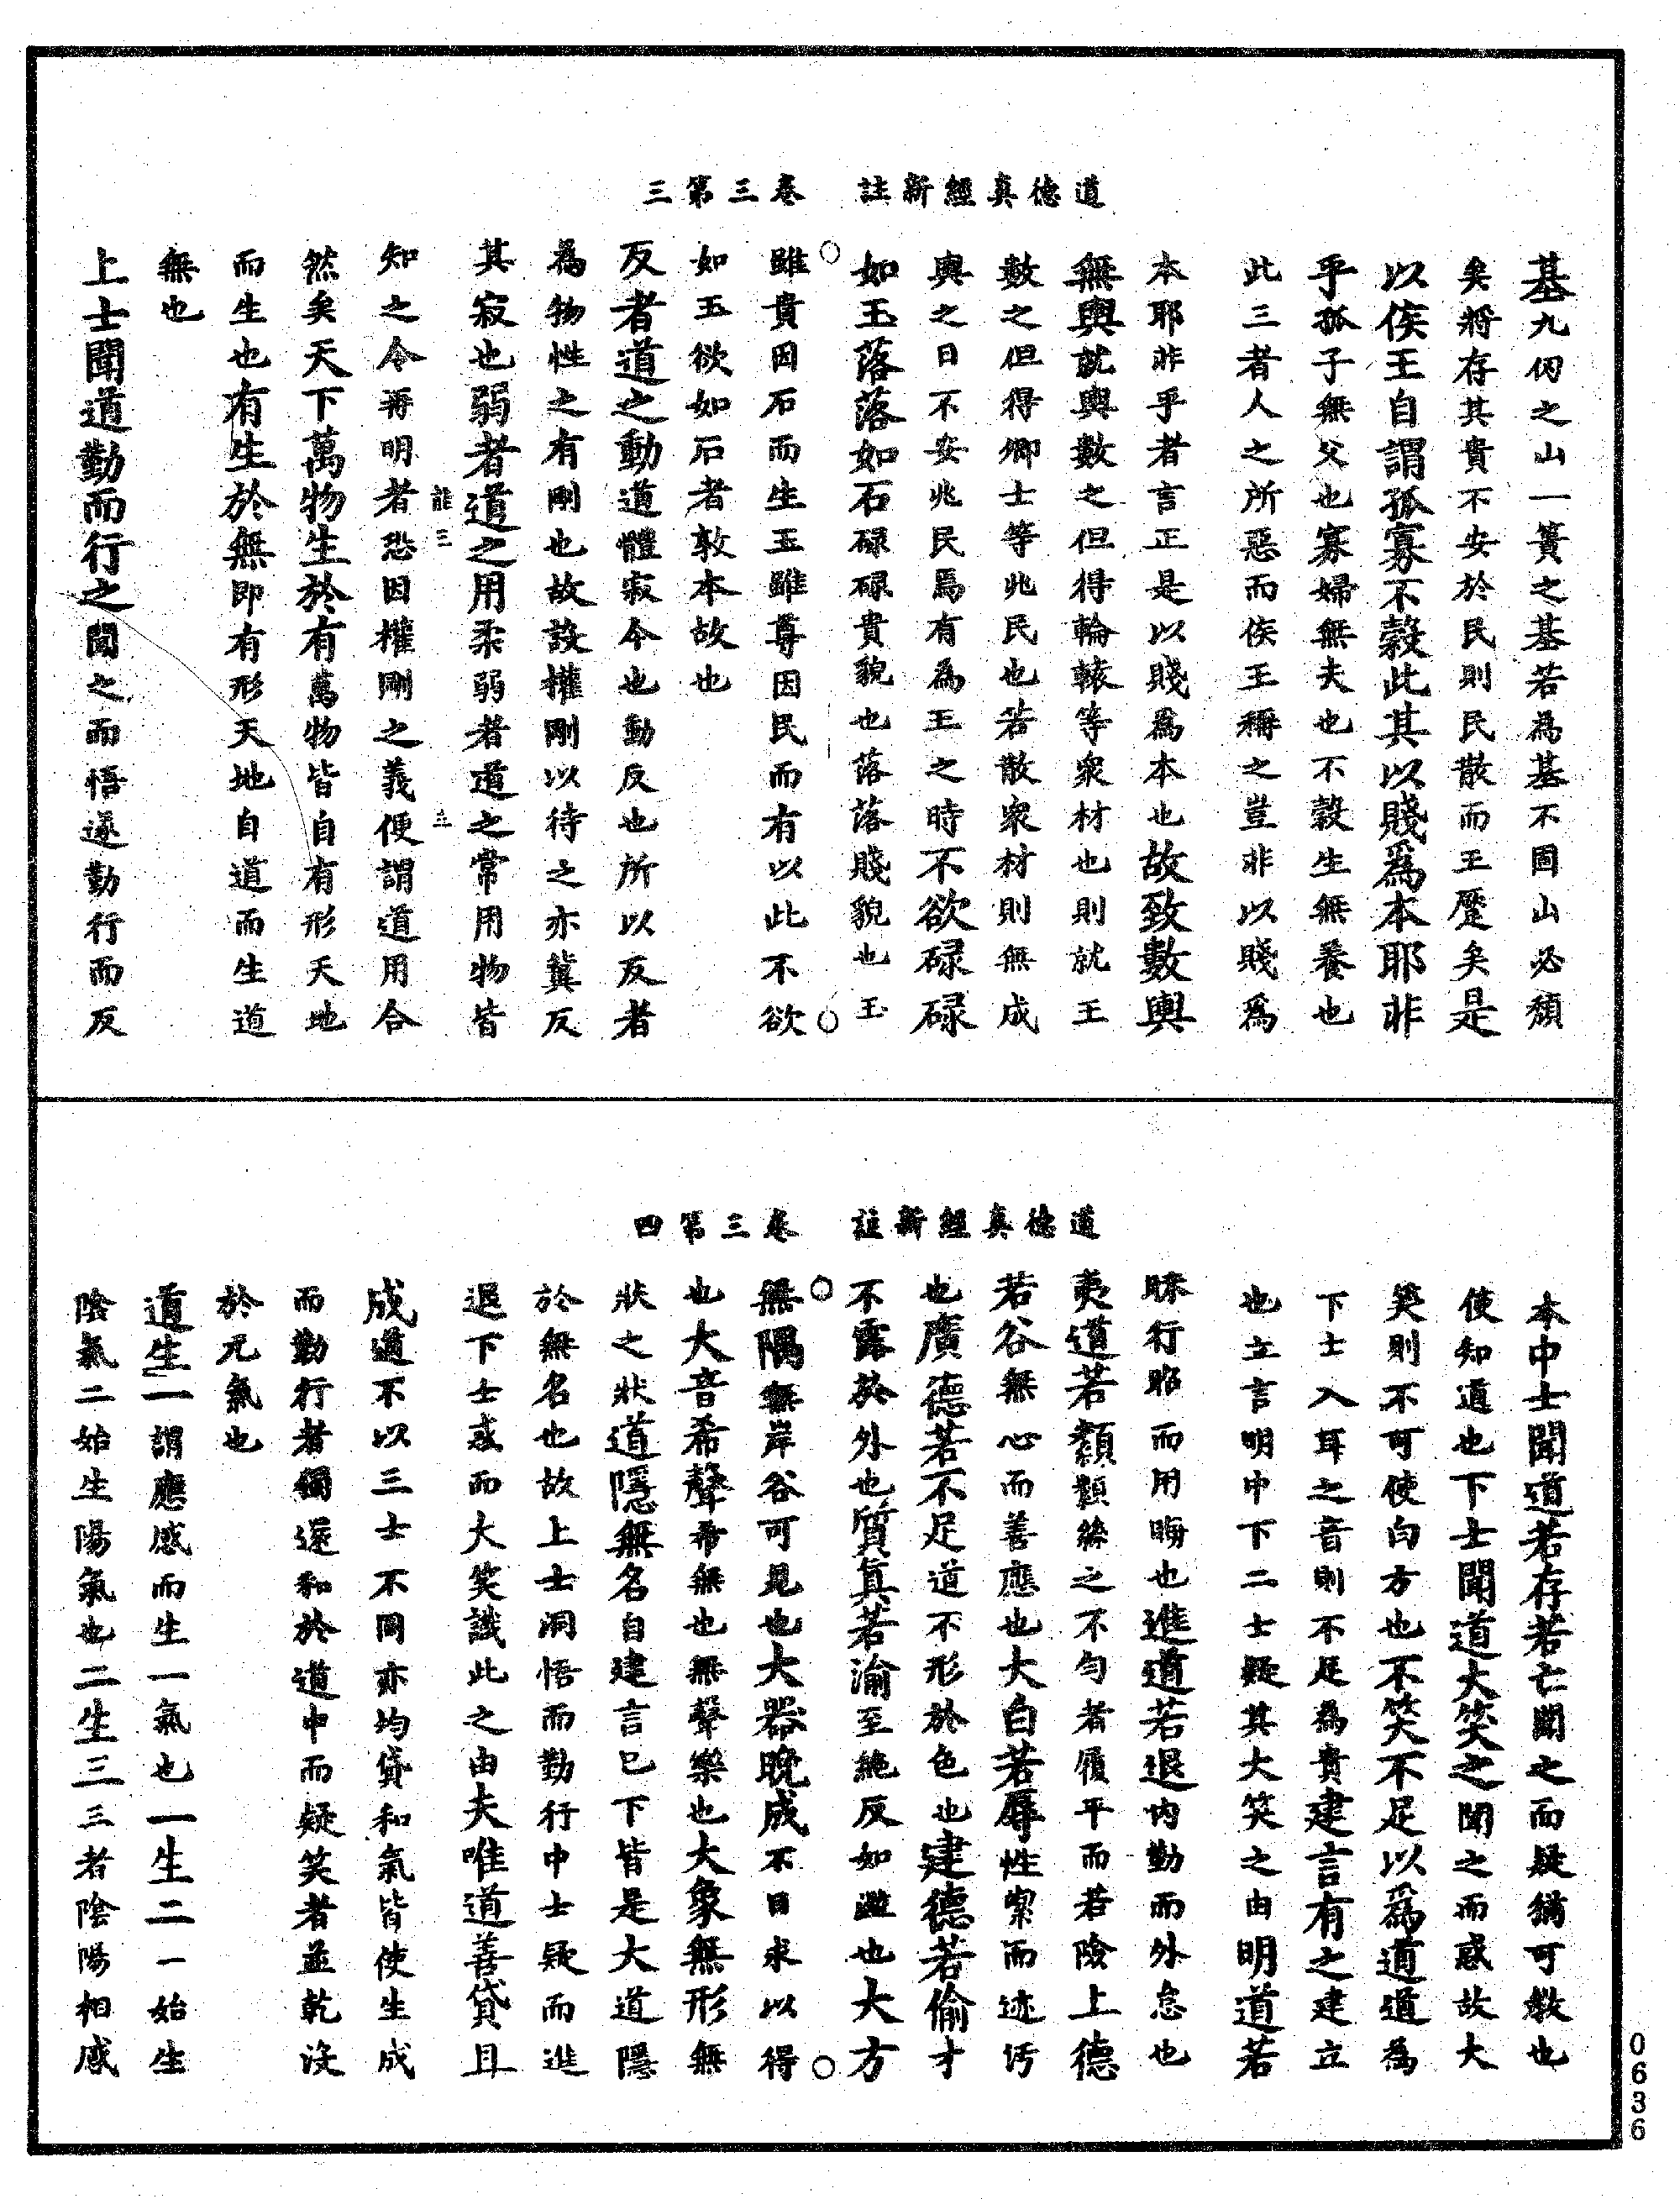 道德真經新註　卷三第三
基九仞之山一簣之基若為基不固山必頹
矣將存其貴不安於民則民散而王蹷矣是
以侯王自謂孤寡不榖此其以賤爲本耶非
乎孤子無父也寡婦無夫也不榖生無養也
此三者人之所惡而侯王稱之豈非以賤爲
本耶非乎者言正是以賤爲本也故致數輿
無輿就輿數之但得輪轅等衆材也則就王
數之但得卿士等兆民也若散衆材則無成
輿之日不安兆民焉有為王之時不欲碌碌
如玉落落如石碌碌貴貌也落落賤貌也玉
雖貴因石而生玉雖尊因民而有以此不欲
如玉欲如石者敦本故也
反者道之動道體寂今也動反也所以反者
為物性之有剛也故設權剛以待之亦冀反
其寂也弱者道之用柔弱者道之常用物皆
知之今再明者恐因權剛之義便謂道用合
然矣天下萬物生於有萬物皆自有形天地
而生也有生於無即有形天地自道而生道
無也
上士聞道勤而行之聞之而悟遂勤行而反
道德真經新註　卷三第四
本中士聞道若存若亡聞之而疑猶可教也
使知道也下士聞道大笑之聞之而惑故大
笑則不可使向方也不笑不足以爲道道為
下士入耳之音則不足為貴建言有之建立
也立言明中下二士疑其大笑之由明道若
昧行昭而用晦也進道若退內勤而外怠也
夷道若纇纇絲之不勻者履平而若險上德
若谷無心而善應也大白若辱性潔而迹污
也廣德若不足道不形於色也建德若偷才
不露於外也質真若渝至純反如渝也大方
無隅無岸谷可見也大器晚成不日求以得
也大音希聲希無也無聲樂也大象無形無
狀之狀道隱無名自建言已下皆是大道隱
於無名也故上士洞悟而勤行中士疑而進
退下士惑而大笑識此之由夫唯道善貸且
成道不以三士不同亦均貸和氣皆使生成
而勤行者獨還和於道中而疑笑者並乾沒
於元氣也
道生一謂應感而生一氣也一生二一始生
陰氣二始生陽氣也二生三三者陰陽相感
0636